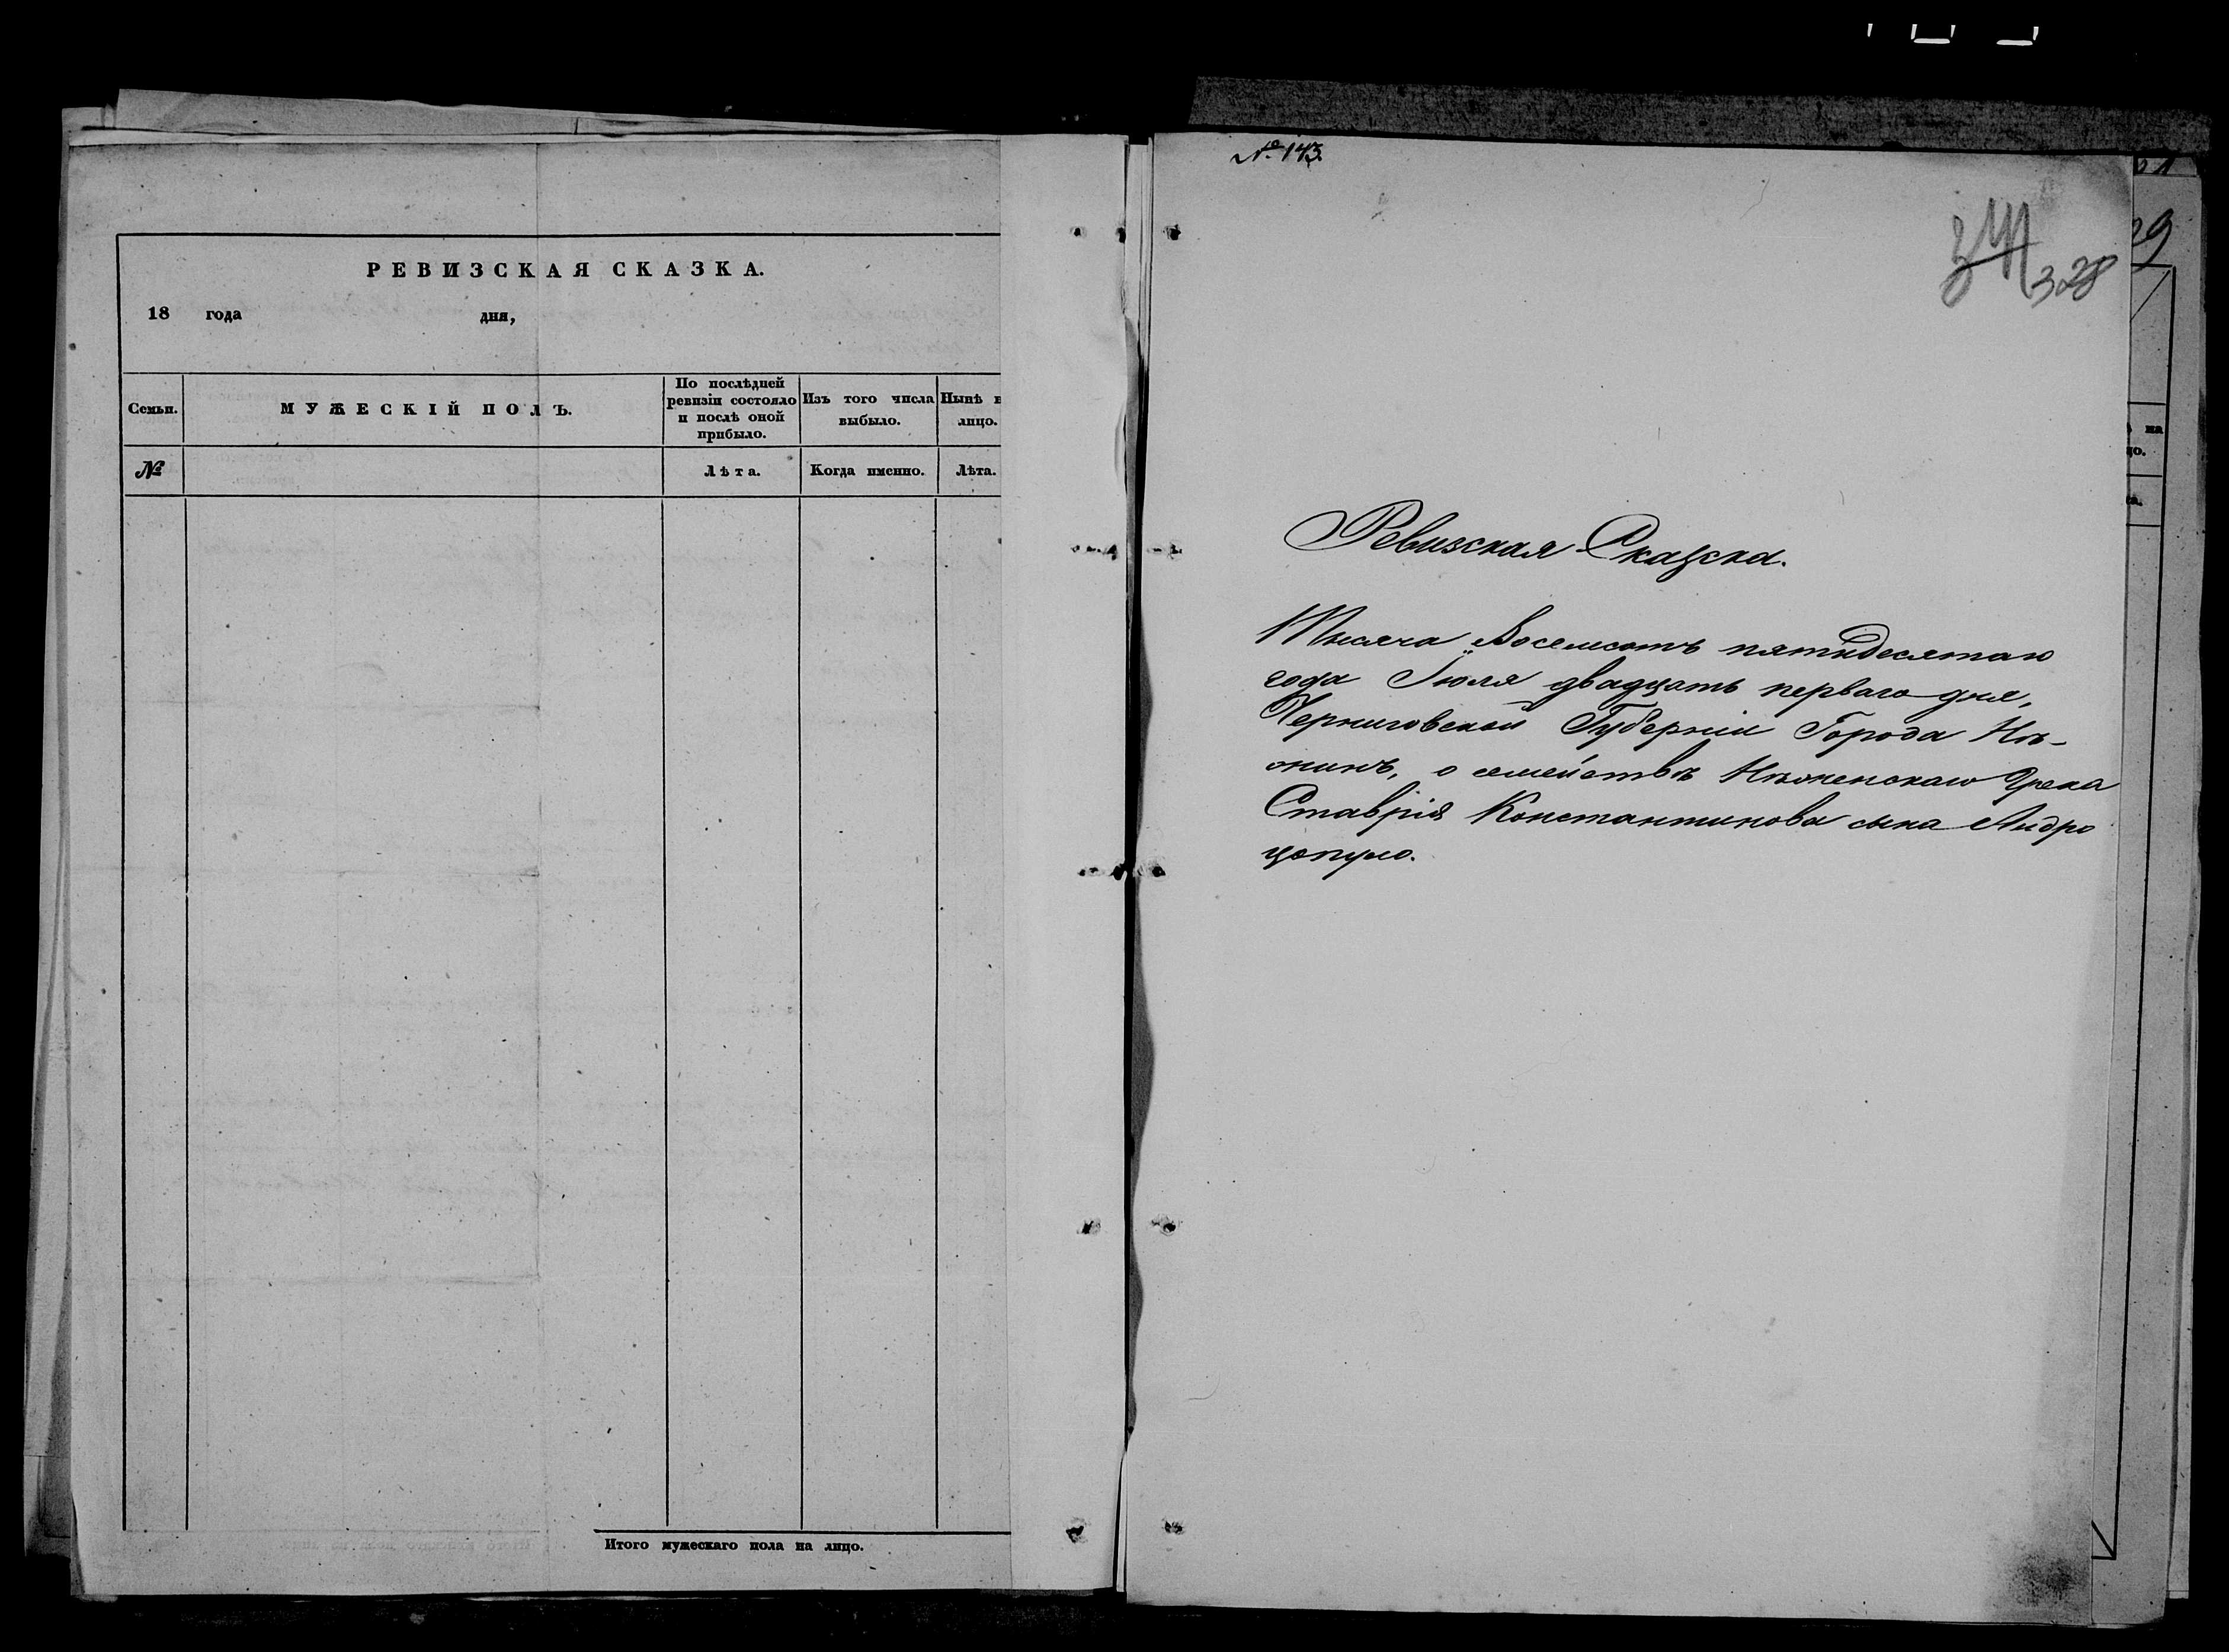 РЕВИЗСКАЯ СКАЗКА.
18 года дня,
Семьи.
МУЖЕСКІЙ ПОЛЪ.
По послѣдней
ревизіи состояло
и послѣ оной
прибыло.
Изъ того числа
выбыло.
Нынѣ н
лицо.
№
Лѣта.
Когда именно.
Лѣта.
Итого мужескаго пола на лицо.
№ 143.
328
Ревизская Сказка.
Тысяча Восемсотъ пятидесятаго
года Іюля двадцать перваго дня,
Черниговской Губерніи Города Нѣ-
жина, о семействѣ Нѣженскаго Грека
Ставрія Константинова сына Андро
цопуло.
29
на